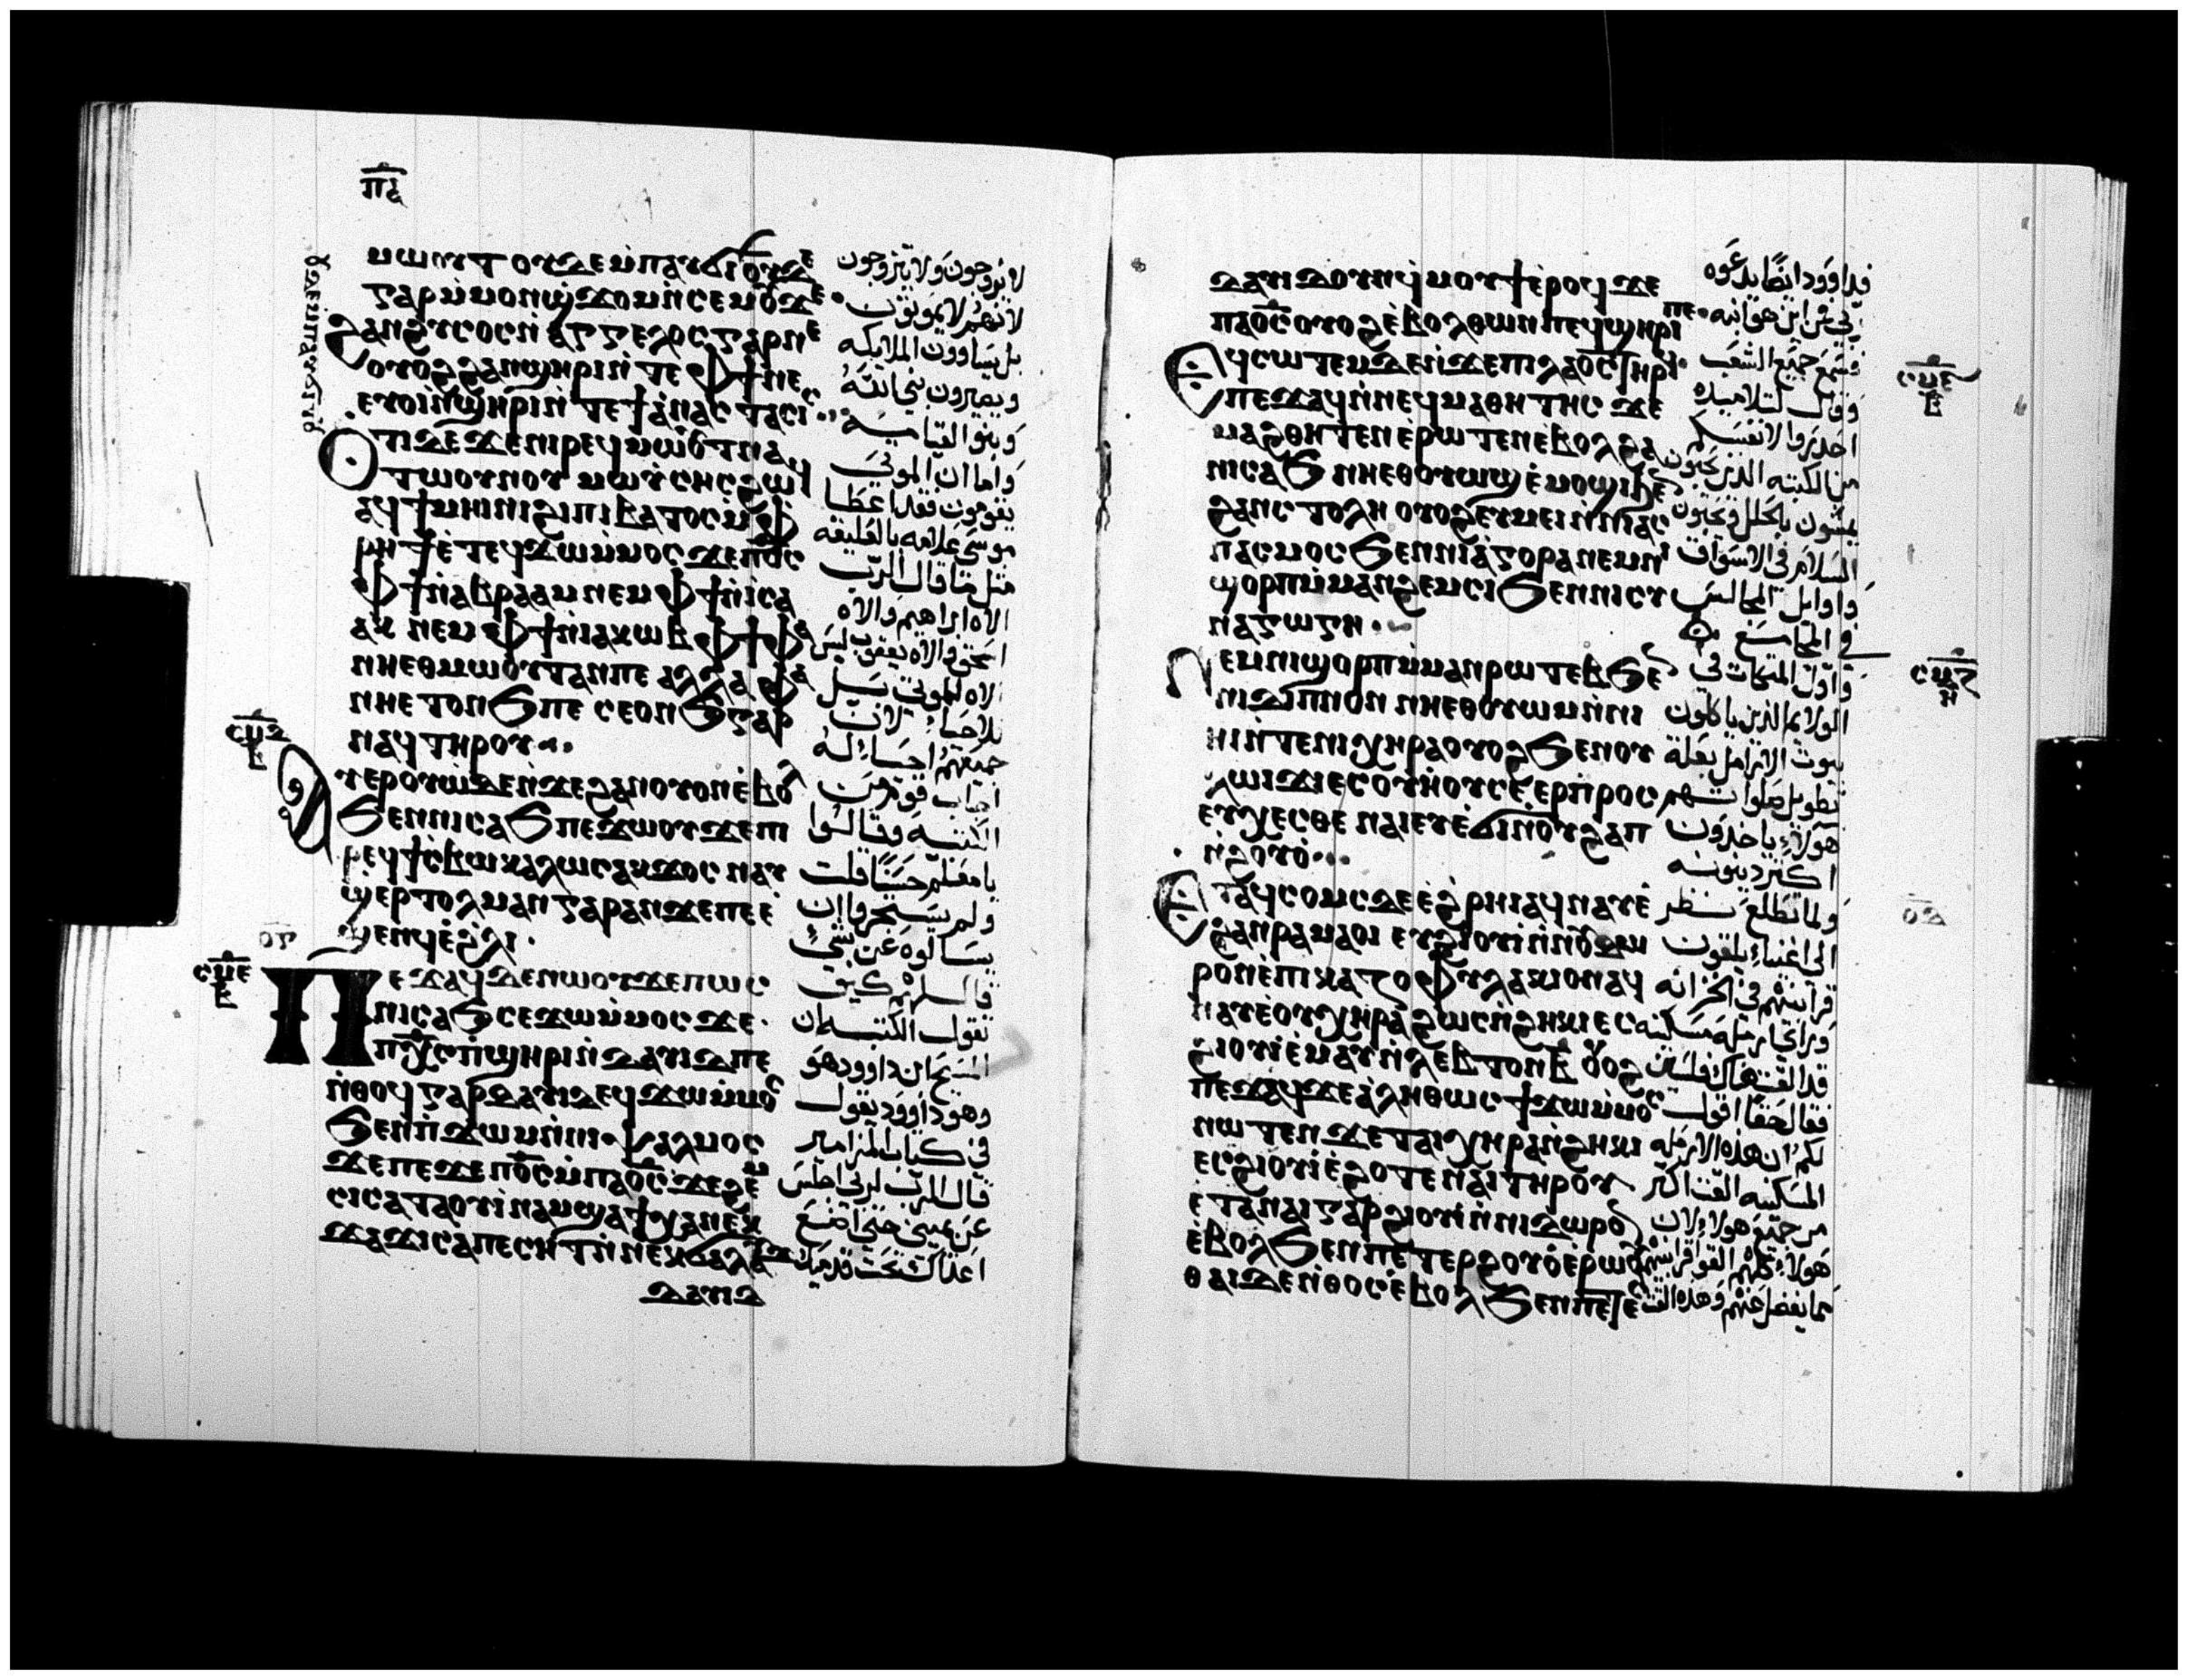 ⲙⲱⲓⲧ ⲟⲩⲇⲉ ⲙⲡⲁⲩϭⲓ ⲟⲩⲇⲉ
ⲅⲁⲣ ⲙⲙⲟⲛ ϣϫⲟⲙ ⲛⲥⲉⲙⲟⲩ ϫⲉ
ϩⲁⲛϩⲩⲥⲟⲥ ⲛⲁⲅⲅⲉⲗⲟⲥ ⲅⲁⲣ ⲛⲉ
ⲟⲩⲟϩ ϩⲁⲛϣⲏⲣⲓ ⲛⲧⲉ ⲫϯ ⲛⲉ
ⲉⲩⲟⲓ ⲛϣⲏⲣⲓ ⲛⲧⲉ ϯⲁⲛⲁⲥⲧⲁⲥⲓⲥ
ⲟⲧⲓ ⲇⲉ ϫⲉ ⲛⲓⲣⲉϥⲙⲱⲟⲩⲧ ⲛⲁ
ⲧⲱⲟⲩⲛⲟⲩ ⲙⲱⲩⲥⲏⲥ ϩⲱϥ
ⲁϥϯⲙⲏⲓⲛⲓ ϩⲓ ⲡⲓⲃⲁⲧⲟⲥ ⲙⲫ
ⲣⲏϯ ⲉⲧⲉϥϫⲱ ⲙⲙⲟⲥ ϫⲉ ⲡϭⲥ
ⲫϯ ⲛⲁⲃⲣⲁⲁⲙ ⲛⲉⲙ ⲫϯ ⲛⲓⲥⲁ
ⲁⲕ ⲛⲉⲙ ⲫϯ ⲛⲓⲁⲕⲱⲃ ⲫϯ ⲫⲁ
ⲛⲏⲉⲑⲙⲱⲟⲩⲧ ⲁⲛ ⲡⲉ ⲁⲗⲗⲁ ⲫⲁ
ⲛⲏⲉⲧⲟⲛϧ ⲡⲉ ⲥⲉⲟⲛϧ ⲅⲁⲣ
ⲛⲁϥ ⲧⲏⲣⲟⲩ
ⲁⲩⲉⲣⲟⲩⲱ ⲇⲉ ⲛϫⲉ ϩⲁⲛⲟⲩⲟⲛ ⲉⲃⲟⲗ
ϧⲉⲛ ⲛⲓⲥⲁϧ ⲡⲉϫⲱⲟⲩ ϫⲉ ⲡⲓ
ⲣⲉϥϯⲥⲃⲱ ⲕⲁⲗⲱⲥ ⲁⲕϫⲟⲥ ⲛⲁⲩ
ϣⲉⲣⲧⲟⲗⲙⲁⲛ ⲅⲁⲣ ⲁⲛ ϫⲉ ⲡⲉ ⲉ
ϣⲉⲛϥ ⲉϩⲗⲓ
ⲡⲉϫⲁϥ ⲇⲉ ⲛⲱⲟⲩ ϫⲉ ⲡⲱⲥ
ⲛⲓⲥⲁϧ ⲥⲉϫⲱ ⲙⲙⲟⲥ ϫⲉ
ⲡⲭⲥ ⲡϣⲏⲣⲓ ⲛⲇⲁⲩⲓⲇ ⲡⲉ
ⲛⲑⲟϥ ⲅⲁⲣ ⲇⲁⲩⲓⲇ ⲉϥϫⲱ ⲙⲙⲟⲥ
ϧⲉⲛ ⲡϫⲱⲙ ⲛⲛⲓⲯⲁⲗⲙⲟⲥ
ϫⲉ ⲡⲉϫⲉ ⲡϭⲥ ⲙⲡⲁϭⲥ ϫⲉ ϩⲉⲙ
ⲥⲓ ⲥⲁⲧⲁⲟⲩⲓⲛⲁⲙ ϣⲁϯⲭⲁ ⲛⲉⲕ
ϫⲁϫⲓ ⲥⲁⲡⲉⲥⲏⲧ ⲛⲛⲉⲕϭⲁⲗⲁⲩϫ
ⲇⲁⲩⲓⲇ
لا يزوجون ولا يتزوجون
لانهم لا يموتون
بل يساوون الملايكه
ويصيرون بني الله
وبنو القيامه
واما ان الموتى
يقومون فقد اعطا
موسى علامه بالعليقه
مثل ما قال الرب
الاه ابراهيم والاه
اسحق والاه يعقوب ليس
الاه الموتى بل
بل احياء لان
جميعهم احيا له
اجاب قوم من
الكتبه وقالوا
يا معلم حسنا قلت
ولم يستجروا ان
يسالوه عن شي
قال لهم كيف
تقول الكتبه ان
المسيح ابن داوود هو
وهو داوود يقول
في كتاب المزامير
قال الرب لربي اجلس
عن يميني حتى اضع
اعداك تحت قدميك
ⲇⲁⲩⲓⲇ ⲟⲩⲛ ϥⲙⲟⲩϯ ⲉⲣⲟϥ ϫⲉ
ⲡⲁϭⲥ ⲟⲩⲟϩ ⲉⲃⲟⲗ ⲑⲱⲛ ⲡⲉϥϣⲏⲣⲓ ⲡⲉ
ⲉϥⲥⲱⲧⲉⲙ ⲇⲉ ⲛϫⲉ ⲡⲓⲗⲁⲟⲥ ⲧⲏⲣϥ
ⲡⲉϫⲁϥ ⲛⲛⲉϥⲙⲁⲑⲏⲧⲏⲥ ϫⲉ
ⲙⲁϩⲑⲏⲧⲉⲛ ⲉⲣⲱⲧⲉⲛ ⲉⲃⲟⲗϩⲁ
ⲛⲓⲥⲁϧ ⲛⲏⲉⲑⲟⲩⲱϣ ⲉⲙⲟϣⲓ ϧⲉⲛ
ϩⲁⲛⲥⲧⲟⲗⲏ ⲟⲩⲟϩ ⲉⲩⲙⲉⲓ ⲛⲛⲓⲁⲥ
ⲡⲁⲥⲙⲟⲥ ϧⲉⲛ ⲛⲓⲁⲅⲟⲣⲁ ⲛⲉⲙ ⲛⲓ
ϣⲟⲣⲡ ⲙⲙⲁⲛϩⲉⲙⲥⲓ ϧⲉⲛ ⲛⲓⲥⲩ
ⲛⲁⲅⲱⲅⲏ
ⲛⲉⲙ ⲛⲓϣⲟⲣⲡ ⲙⲙⲁⲛⲣⲱⲧⲉⲃ ϧⲉⲛ
ⲛⲓⲇⲓⲡⲛⲟⲛ ⲛⲏⲉⲑⲟⲩⲱⲙ ⲛⲛⲓ
ⲏⲓ ⲛⲧⲉ ⲛⲓⲭⲏⲣⲁ ⲟⲩⲟϩ ϧⲉⲛ ⲟⲩ
ⲗⲱⲓϫⲓ ⲉⲥⲟⲩⲏⲟⲩ ⲥⲉⲉⲣⲡⲣⲟⲥ
ⲉⲩⲭⲉⲥⲑⲉ ⲛⲁⲓ ⲉⲩⲉϭⲓ ⲛⲟⲩϩⲁⲡ
ⲛϩⲟⲩⲟ
ⲉⲧⲁϥⲥⲟⲙⲥ ⲇⲉ ⲉϩⲣⲏⲓ ⲁϥⲛⲁⲩ ⲉ
ϩⲁⲛⲣⲁⲙⲁⲟⲓ ⲉⲩϩⲓⲟⲩⲓ ⲛⲛⲟⲩⲇⲱ
ⲣⲟⲛ ⲉⲡⲓⲅⲁⲍⲟⲫⲩⲗⲁⲕⲓⲟⲛ ⲁϥ
ⲛⲁⲩ ⲉⲟⲩⲭⲏⲣⲁ ϩⲱⲥ ⲛϩⲏⲕⲓ ⲉⲥ
ϩⲓⲟⲩⲓ ⲉⲙⲁⲩ ⲛⲗⲉⲡⲧⲟⲛ ⲃ ⲟⲩⲟϩ
ⲡⲉϫⲁϥ ϫⲉ ⲁⲗⲏⲑⲱⲥ ϯϫⲱ ⲙⲙⲟⲥ
ⲛⲱⲧⲉⲛ ϫⲉ ⲧⲁⲓⲭⲏⲣⲁ ⲛϩⲏⲕⲓ
ⲉⲥϩⲓⲟⲩⲓ ⲉϩⲟⲧⲉ ⲛⲁⲓ ⲧⲏⲣⲟⲩ
ⲉⲧⲁ ⲛⲁⲓ ⲅⲁⲣ ϩⲓⲟⲩⲓ ⲛⲛⲓⲇⲱⲣⲟⲛ
ⲉⲃⲟⲗϧⲉⲛ ⲡⲉⲧⲉⲣϩⲟⲩⲟ ⲉⲣⲱⲟⲩ
ⲑⲁⲓ ⲇⲉ ⲛⲑⲟⲥ ⲉⲃⲟⲗϧⲉⲛ ⲡⲉⲥ
فداوود ايضا يدعوه
ربي فمن اين هو ابنه
فسمع جميع الشعب
وقال لتلاميده
احذروا لانفسكم
من الكتبه الذين يحبون
يمشون بالحلل ويحبون
السلام في الاسواق
واوايل المجالس
في المجامع
واول المتكات في
الولايم الذين ياكلون
بيوت الارامل بعلة
تطويل صلواتهم
هولاء ياخذون
اكثر دينونه
ولما تطلع نظر
الى اغنياء يلقون
قرابينهم في الخزانه
وراى ارمله مسكينه
قد القت هناك فلسين
فقال حقا اقول
لكم ان هذه الارمله
المسكينه القت اكثر
من جميع هولاء لان
هولاء كلهم القوا قرابينهم
مما يفضل عنهم وهذه القت